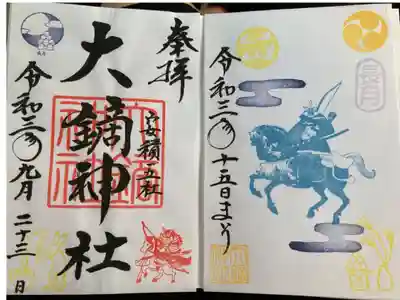 奉拝
安積五社
大鏑神社
令和三年九月二十三日
長月
令和三年十五日まいり